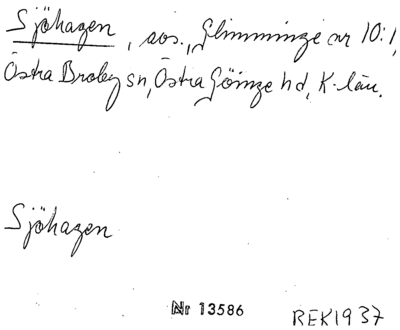 Sjöhagen, sos., Glimminge nr 10:1,
Östra Broby sn, Östra Göinge hd, K-län.
Sjöhagen
Nr 13586
REK1937